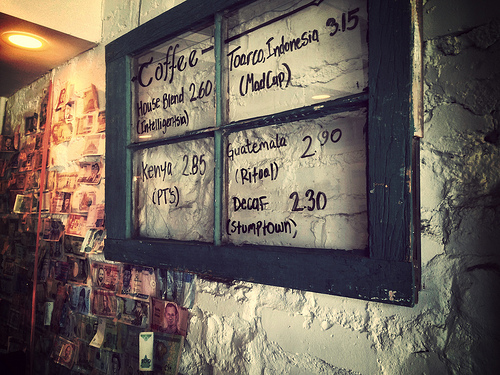 -Coffee-
House Blend 2.60
(Intelligentsia)
Toarco, Indonesia 3.15
(MadCap)
Kenya 2.85
(PT's)
Guatemala 2.90
(Ritual)
Decaf 2.30
(Stumptown)